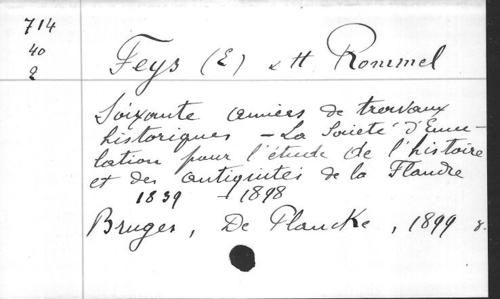 714
40
2
Feys (E) & H Rommel
Soixante années de travaux
historiques - La Société d'Emu-
lation pour l'étude de l'histoire
et des antiquités de la Flandre
1839 - 1898
Bruges, De Plancke, 1899 8.